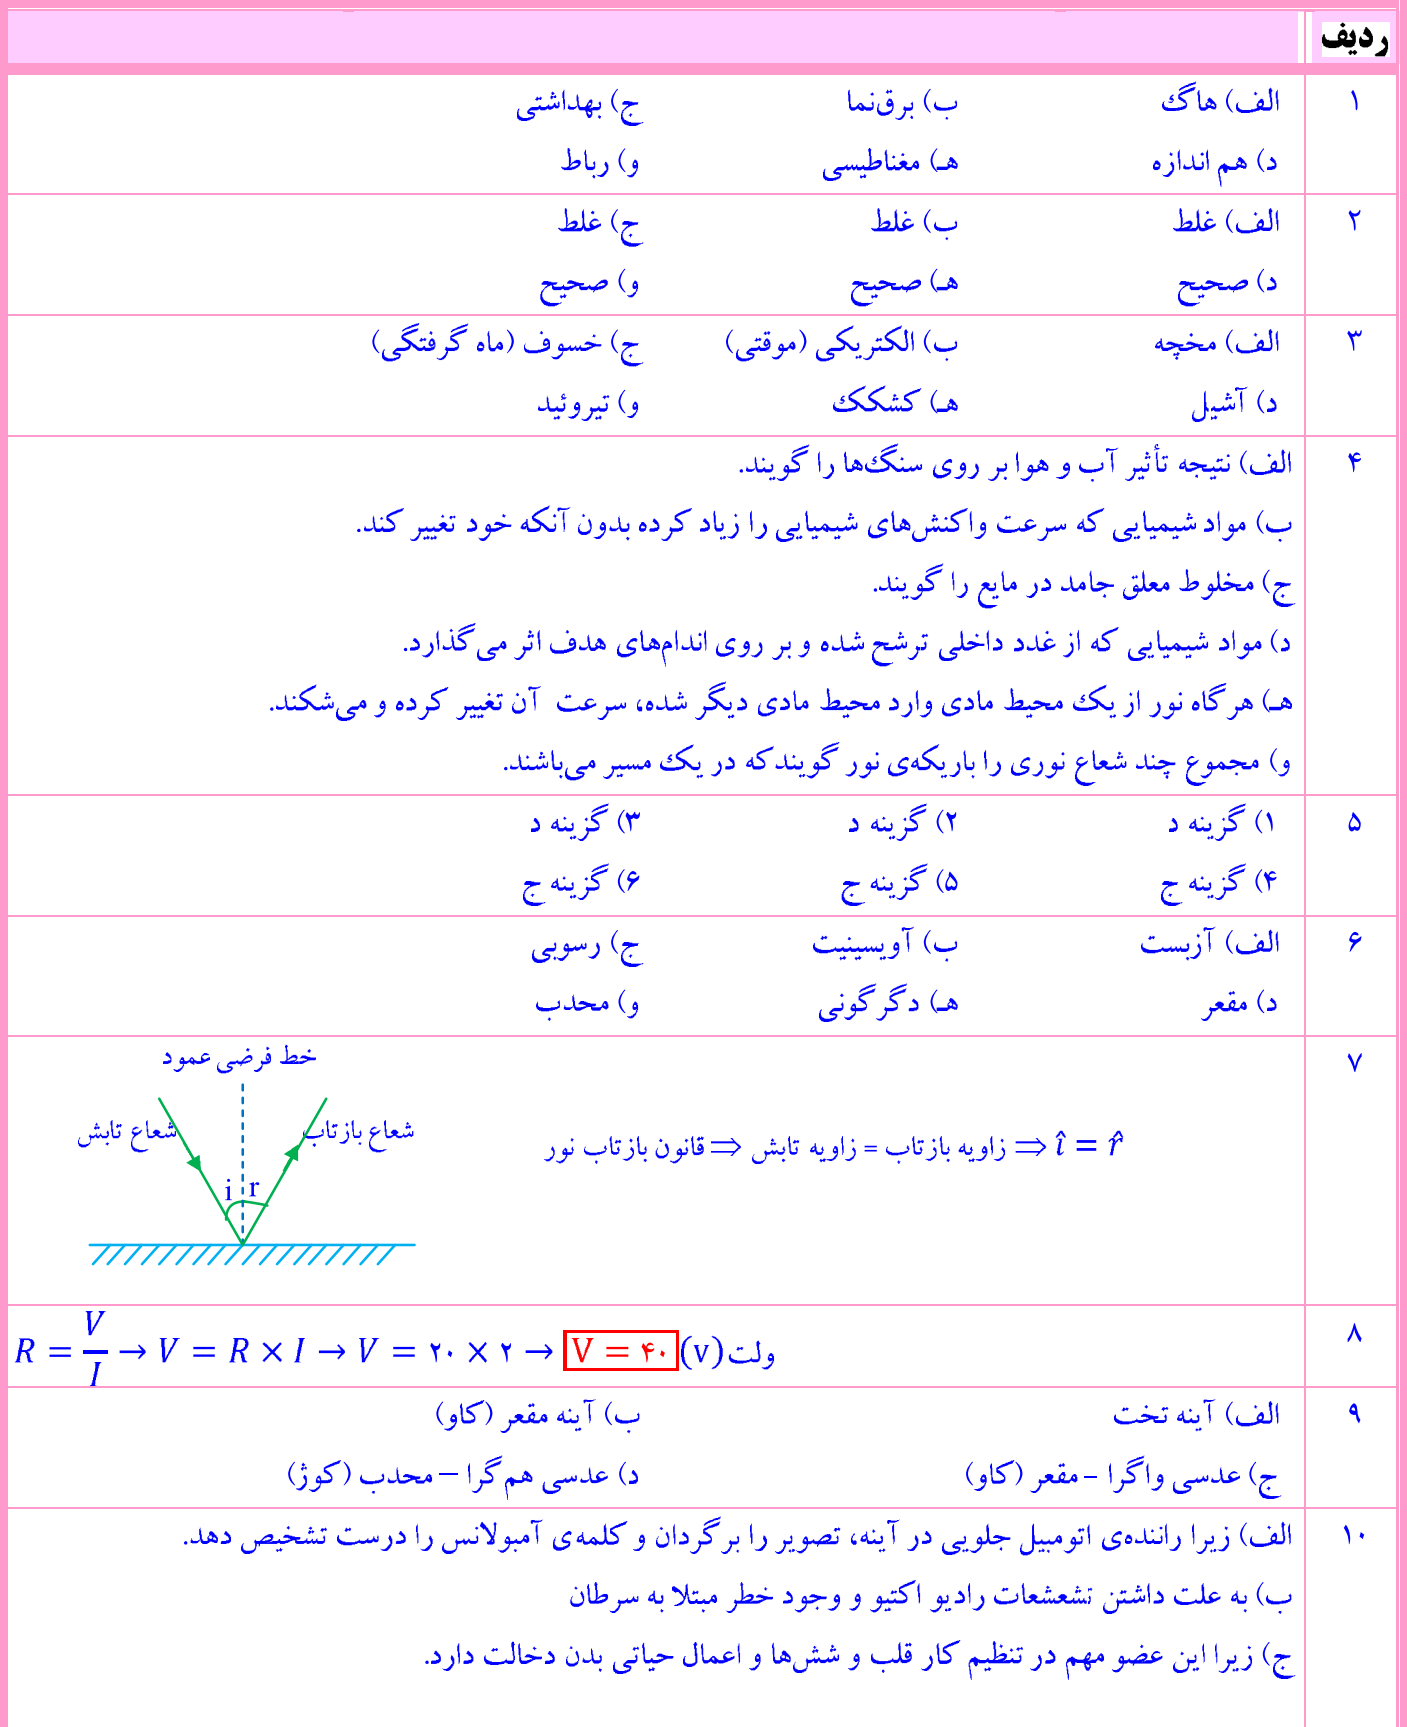 ردیف
۱
الف) هاگ ب) برق‌نما ج) بهداشتی
د) هم اندازه هـ) مغناطیسی و) رباط
۲
الف) غلط ب) غلط ج) غلط
د) صحیح هـ) صحیح و) صحیح
۳
الف) مخچه ب) الکتریکی (موقتی) ج) خسوف (ماه گرفتگی)
د) آشیل هـ) کشکک و) تیروئید
۴
الف) نتیجه تأثیر آب و هوا بر روی سنگ‌ها را گویند.
ب) مواد شیمیایی که سرعت واکنش‌های شیمیایی را زیاد کرده بدون آنکه خود تغییر کند.
ج) مخلوط معلق جامد در مایع را گویند.
د) مواد شیمیایی که از غدد داخلی ترشح شده و بر روی اندام‌های هدف اثر می‌گذارد.
هـ) هرگاه نور از یک محیط مادی وارد محیط مادی دیگر شده، سرعت آن تغییر کرده و می‌شکند.
و) مجموع چند شعاع نوری را باریکه‌ی نور گویندکه در یک مسیر می‌باشند.
۵
۱) گزینه د ۲) گزینه د ۳) گزینه د
۴) گزینه ج ۵) گزینه ج ۶) گزینه ج
۶
الف) آزبست ب) آویسینیت ج) رسوبی
د) مقعر هـ) دگرگونی و) محدب
۷
خط فرضی عمود
شعاع بازتاب شعاع تابش
î = r̂ ⇒ زاویه بازتاب = زاویه تابش ⇒ قانون بازتاب نور
i r
۸
R = V/I → V = R × I → V = ۲۰ × ۲ → V = ۴۰ (v) ولت
۹
الف) آینه تخت ب) آینه مقعر (کاو)
ج) عدسی واگرا – مقعر (کاو) د) عدسی هم‌گرا – محدب (کوژ)
۱۰
الف) زیرا راننده‌ی اتومبیل جلویی در آینه، تصویر را برگردان و کلمه‌ی آمبولانس را درست تشخیص دهد.
ب) به علت داشتن تشعشعات رادیو اکتیو و وجود خطر مبتلا به سرطان
ج) زیرا این عضو مهم در تنظیم کار قلب و شش‌ها و اعمال حیاتی بدن دخالت دارد.